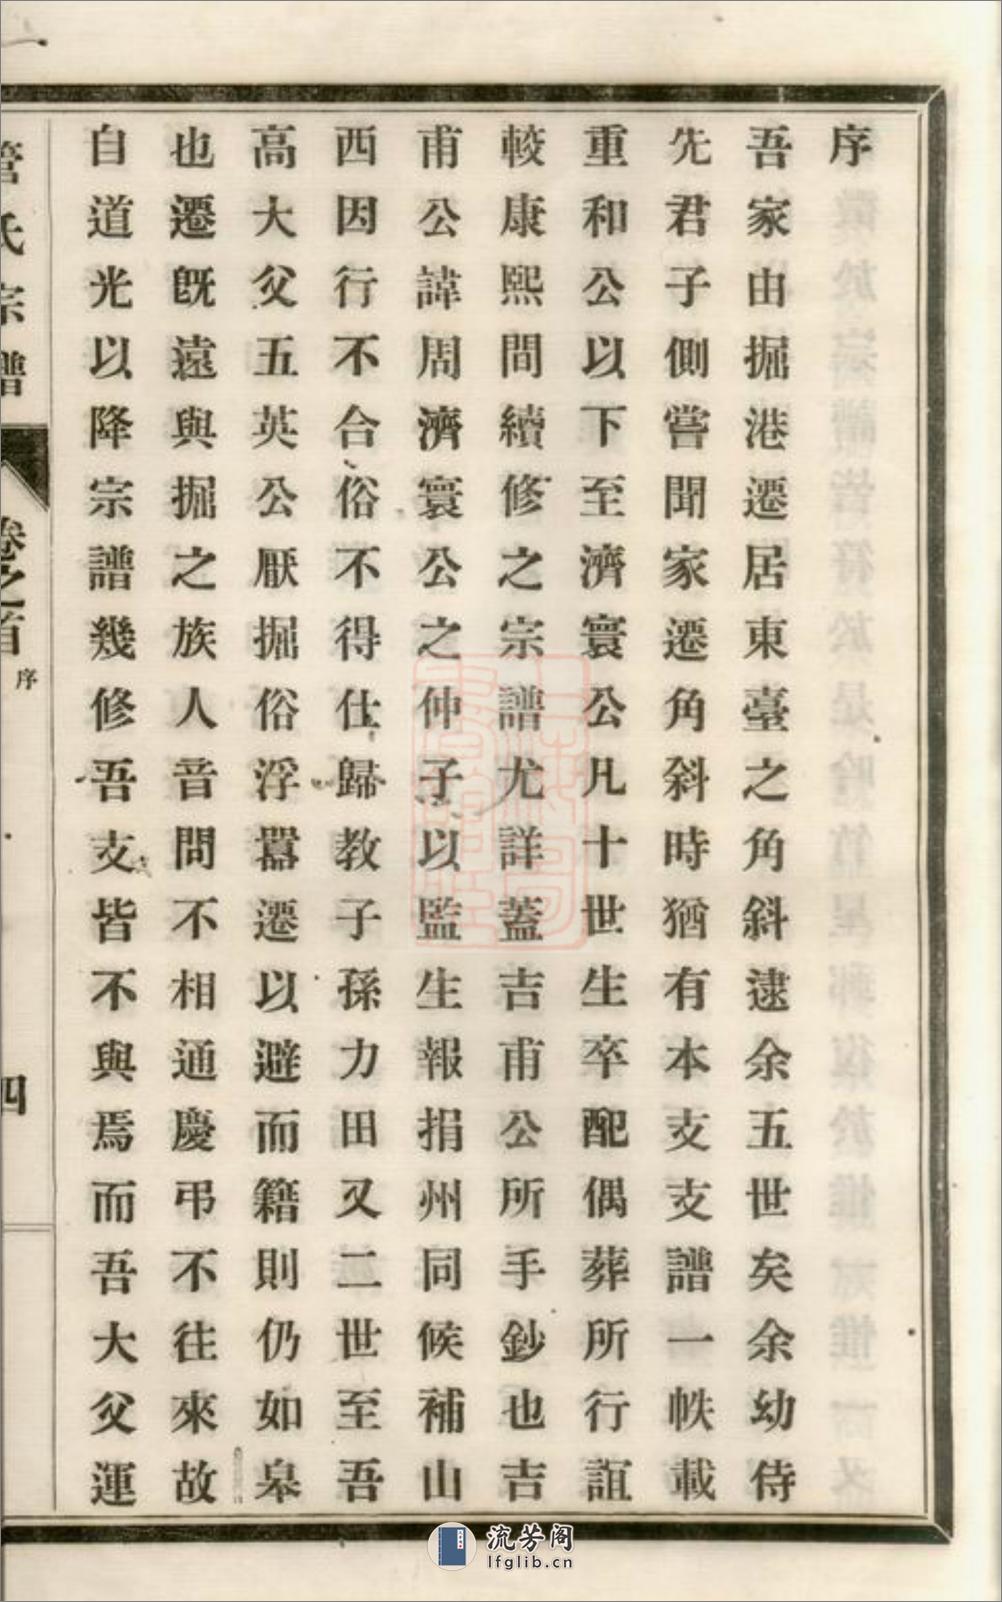 序
吾家由掘港遷居東臺之角斜逮余五世矣余幼侍
先君子側嘗聞家遷角斜時猶有本支支譜一帙載
重和公以下至濟寰公凡十世生卒配偶葬所行誼
較康熙間續修之宗譜尤詳蓋吉甫公所手鈔也吉
甫公諱周濟寰公之仲子以監生報捐州同候補山
西因行不合俗不得仕歸教子孫力田又二世至吾
高大父五英公厭掘俗浮囂遷以避而籍則仍如皋
也遷旣遠與掘之族人音問不相通慶弔不往來故
自道光以降宗譜幾修吾支皆不與焉而吾大父運
管氏宗譜
卷之首
序
四
流芳阁
lfglib.cn